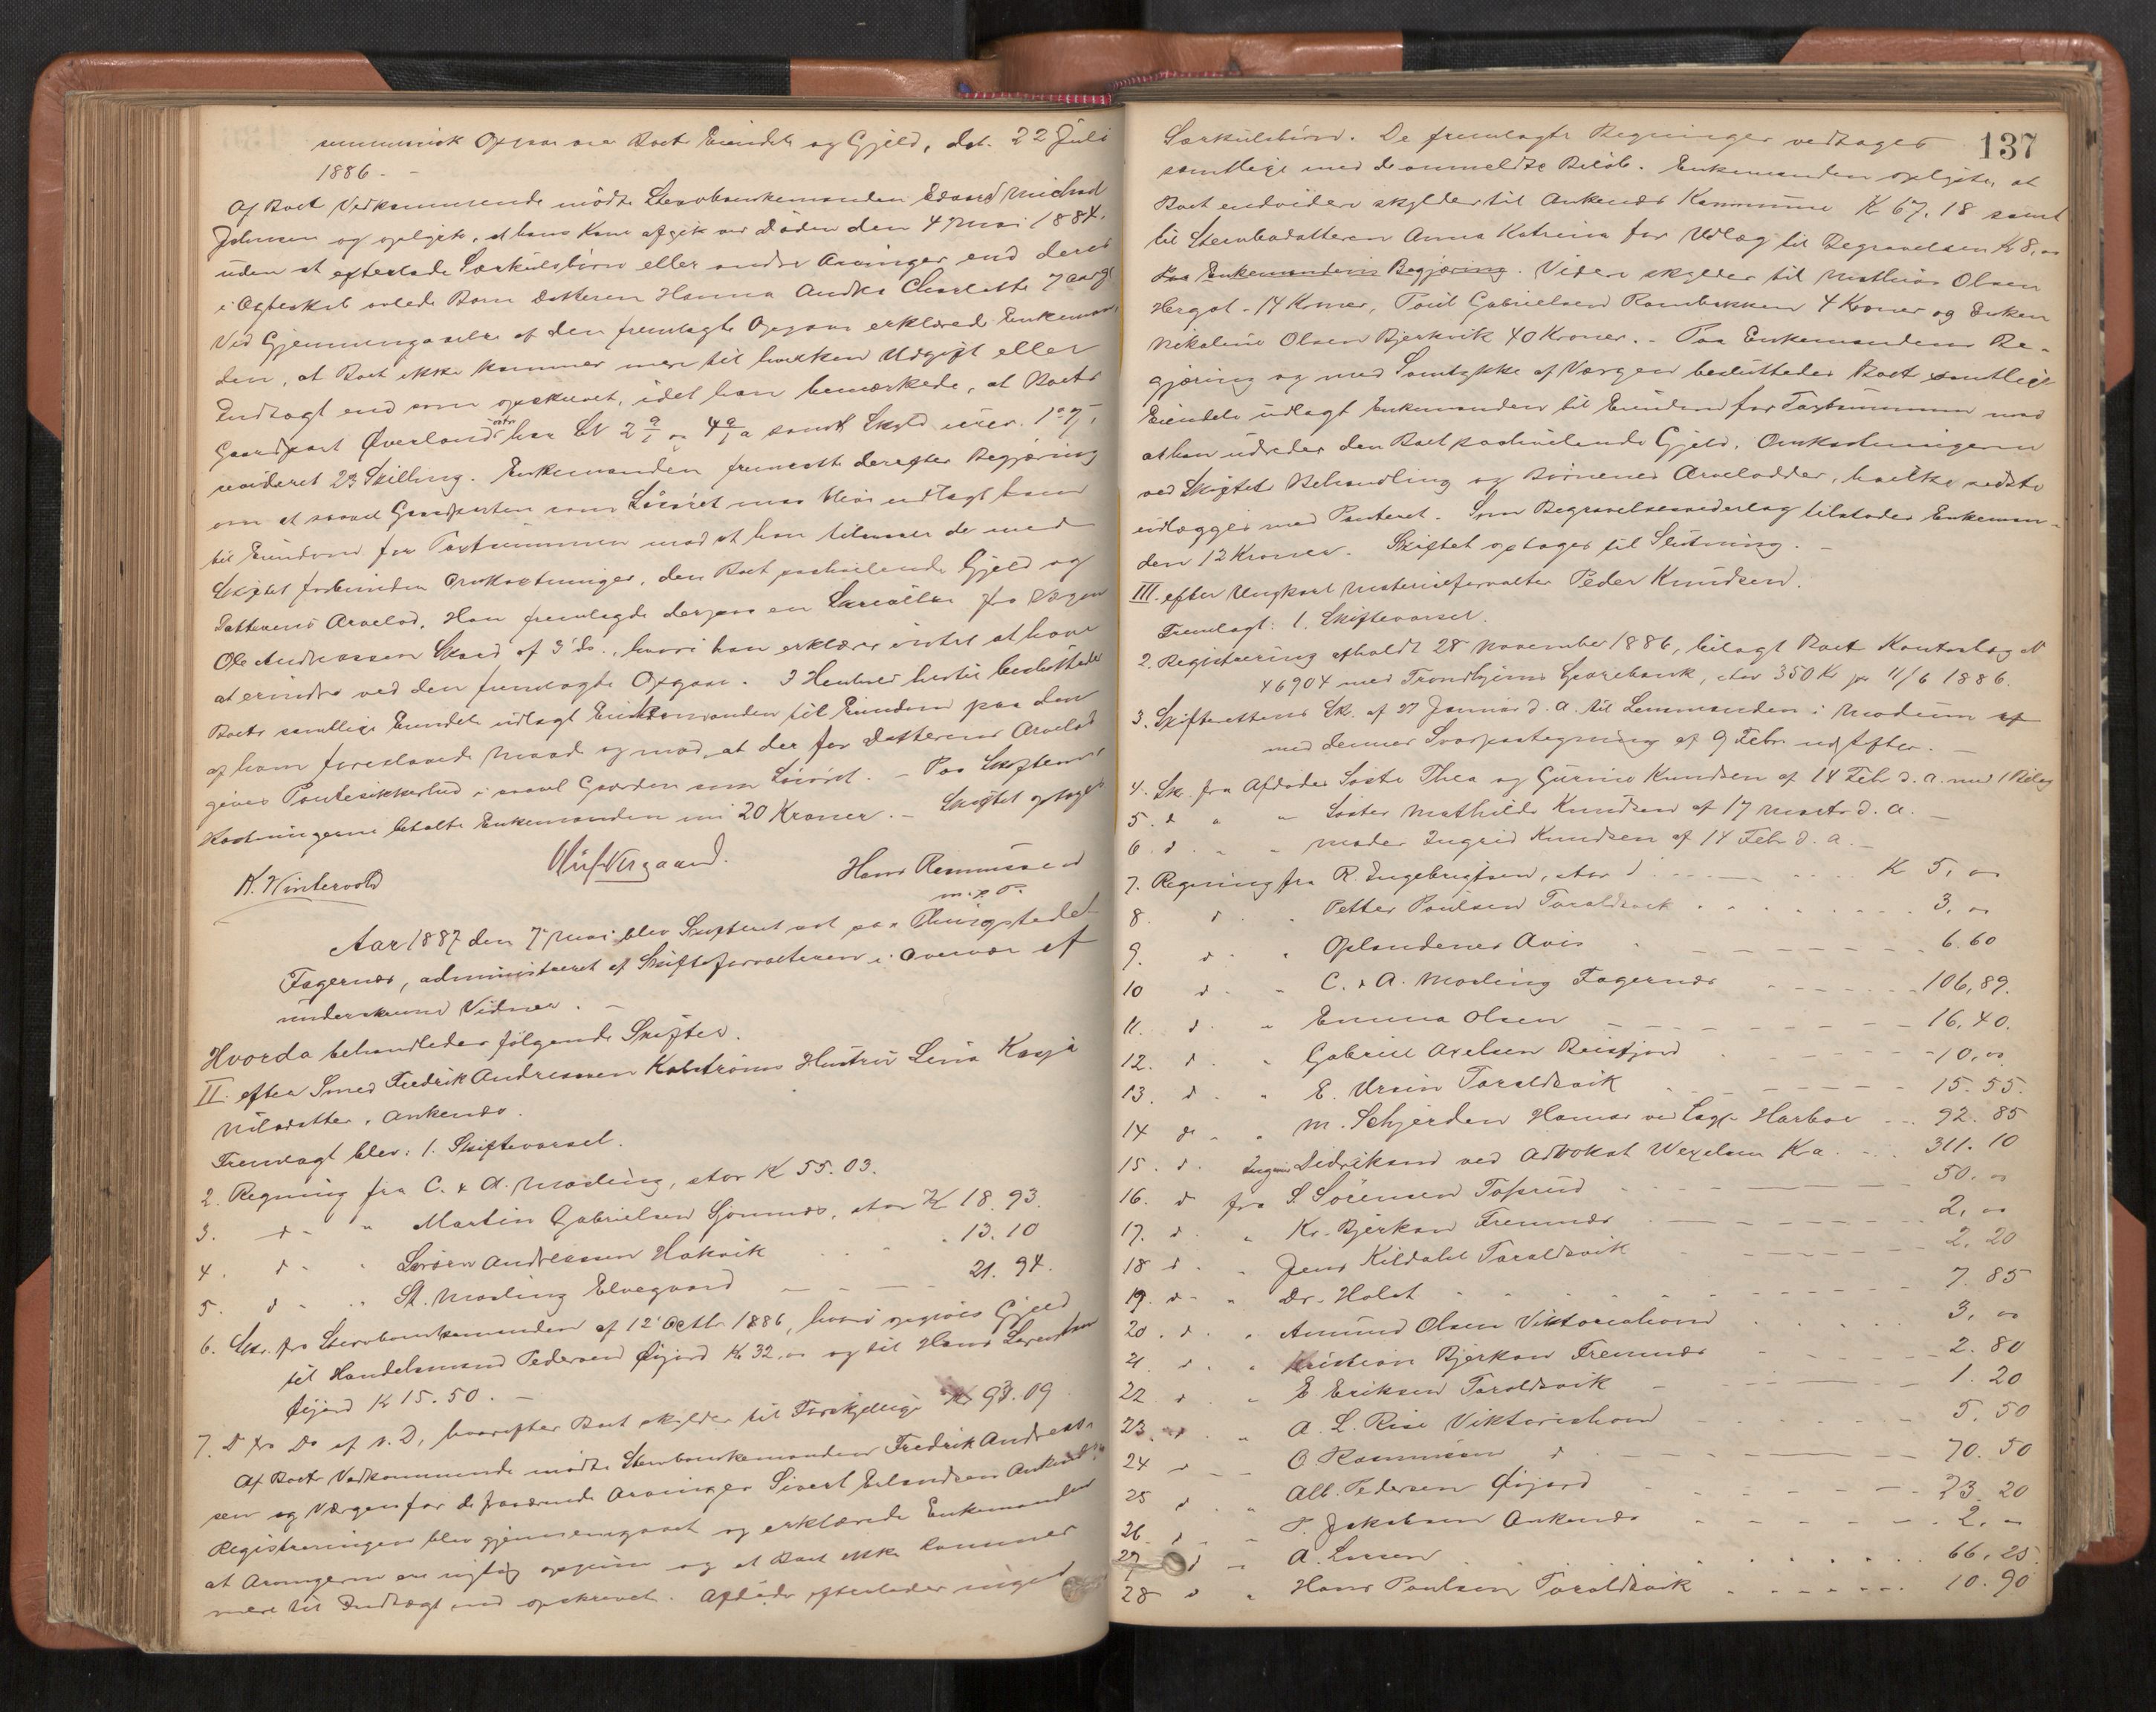 summarisk Opgave over Boets Eiendele og Gjeld, dat. 22 Juli
1886. -
Af Boets Vedkommende mødte Stervboenkemanden Edvard Michael
Johnsen og oplyste, at hans Kone afgik ved Døden den 4 Mai 1884.
uden at efterlade Særkulsbørn eller andre Arvinger end deres
i Ægteskab avlede Barn Datteren Hanna Andrea Charlotte 7 Aar gl.
Ved Gjennemgaaelse af den fremlagte Opgave erklærede Enkeman-
den, at Boet ikke kommer mere til hverken Udgift eller
Indtægt end som opskrevet, idet han bemærkede, at Boets
Gaardpart Øverland har LN samt Skyld
revideret 23 Skilling. Enkemanden fremsatte derefter Begjæring
om at saavel Gaardparten som Løsøret maa blive udlagt ham
til Eiendom for Taxtsummen mod at han tilsvarer de med
Skiftet forbundne Omkostninger, den Boet paahvilende Gjeld og
Datterens Arvelod. Han fremlagde derpaa en fra Værgen
Ole Andreassen af 3 ds., hvori han erklærer intet at have
at erindre ved den fremlagte Opgave. I Henhold hertil besluttedes
Boets samtlige Eiendele udlagt Enkemanden til Eiendom paa den
af ham foreslaaede Maade og mod, at der for Datterens Arvelod
gives Pantesikkerhed i saavel Gaarden som Løsøret. - Paa Skiftem-
kostningerne betalte Enkemanden 20 Kroner. - Skiftet optages
K. Wintervold Hans Rasmussen
m. p. P.
Aar 1887 den 7 Mai blev Skifteret sat paa Thingstedet
Fagernes, administreret af Skifteforvalteren i Overvær af
underskrevne Vidner. -
Hvorda behandledes følgende Skifter.
II. efter Smed Fredrik Andreassen Kalstrøms Hustru Lina Kaysa
Nilsdatter, Ankenes.
Fremlagt blev: 1. Skiftevarsel.
2. Regning fra C. & A. Mosling, stor K 55.03.
3. d - " Martin Gabrielsen , stor K 18.93.
4. d - " Søren Andreassen Hakvik 13.10
5. d - " St. Mosling Elvegaard 21.94.
6. Skr. fra Stervboenkemanden af 12 Octbr 1886, hvori opgives Gjeld
til Handelsmand Pedersen Øijord K 32,00 og til Hans
Øijord K 15.50. -
7. D fra Do af s. D, hvorefter Boet skylder til Forskjellige Kr 93.09
Af Boets Vedkommende mødte Stervboenkemanden Fredrik Andreas-
sen og Værgen for de fraværende Arvinger Sivert Erlandsen Ankenes.
Registreringen blev gjennemgaaet og erklærede Enkemanden
at Arvingerne ere rigtig opgivne og at Boet ikke kommer
mere til Indtægt end opskrevet. Afdøde efterlader ingen
137
Særkulsbørn. De fremlagte Regninger vedtages
samtlige med de anmeldte Beløb. Enkemanden oplyste, at
Boet endvidere skylder til Ankenes Kommune K 67.18 samt
til Stervbodatteren Anna Katrina for Udlæg til Begravelsen K 8,00
Paa Enkemandens Begjæring. Videre skylder til Mathias Olsen
Hergot 14 Kroner, Poul Gabrielsen Rombakken 4 Kroner og Enken
Nikoline Olsen Bjerkvik 40 Kroner. - Paa Enkemandens Be-
gjæring og med Samtykke af Værgen besluttedes Boets samtlige
Eiendele udlagt Enkemanden til Eiendom for Taxtsummen mod
at han udreder den Boet paahvilende Gjeld, Omkostningerne
ved Skiftets Behandling og Børnenes Arvelodder, hvilke sidste
udlægges mod Panteret. Som Begravelsesvederlag tilstodes Enkeman-
den 12 Kroner. Skiftet optages til Slutning. -
III. efter Ungkarl Materielforvalter Peder Knudsen.
Fremlagt: 1. Skiftevarsel.
2. Registrering afholdt 28 November 1886, bilagt Boets Kontrabog N
46904 med Trondhjems Sparebank, stor 350 Kr pr 11/6 1886.
3. Skifterettens Sk. af 27 Januar d. A. til Lensmanden i Modum af
med dennes Svarpaategning af 9 Febr
4. Skr. fra Afdødes Søstre Thea og Gurine Knudsen af 14 Feb d. A. med 1 Bilag
5. d " " Søster Mathilde Knudsen af 17 Marts d. A. -
6. d. " " Moder Ingrid Knudsen af 14 Feb d. A. -
7. Regning fra R. Ingebrigtsen, stor K 5,00
8. d " Petter Poulsen Taraldsvik 3,00
9. d " Oplandenes Avis 6.60
10 d " C. & A. Mosling Fagernes 106,89.
11. d " Emma Olsen 16.40.
12. d " Gabriel Axelsen Beisfjord 10,00
13. d " E. Ursin Taraldsvik 15.55.
14 d " M. Schjerden Hamar ved Sagf. Harboe 92.85
15. d. Didriksen ved Advokat Wexelsen K a. 311.10
16. d fra S. Sørensen 50.00
17. d " Kr. Bjerkan Fremnes 2,00
18 d " Jens Kildahl Taraldsvik 2.20
19. d " Dr. Holst 7.85
20. d. " Amund Olsen Viktoriahavn 3,00
21. d. " Kristian Bjerkan Fremnes 2.80
22 d " E Eriksen Taraldsvik 1.20
23. d " A. L. Rise Viktoriahavn 5.50
24 d " O Rasmussen d 70.50
25 d " Alb. Pedersen Øijord 23.20
26. d " P. Jakobsen Ankenes 2. -
27 d " A. Larsen 66.25.
28 d " Hans Poulsen Taraldsvik 10.90